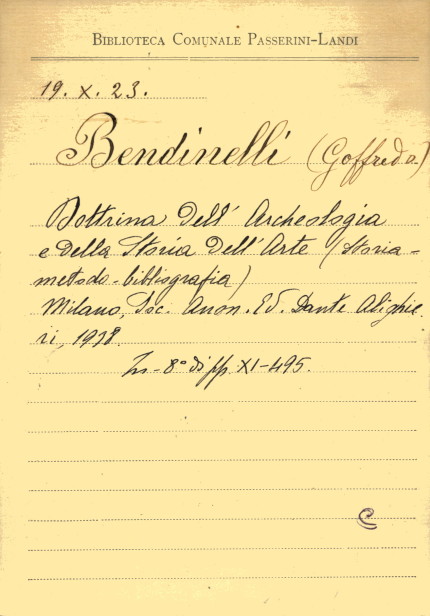 BIBLIOTECA COMUNALE PASSERINI-LANDI
19. X. 23.
Bendinelli (Goffredo.)
Dottrina dell' Archeologia
e della Storia dell'Arte (Storia-
metodo-bibliografia)
Milano, Soc. Anon. Ed. Dante Alighie
ri, 1928.
In-8° di pp. XI-495.
C